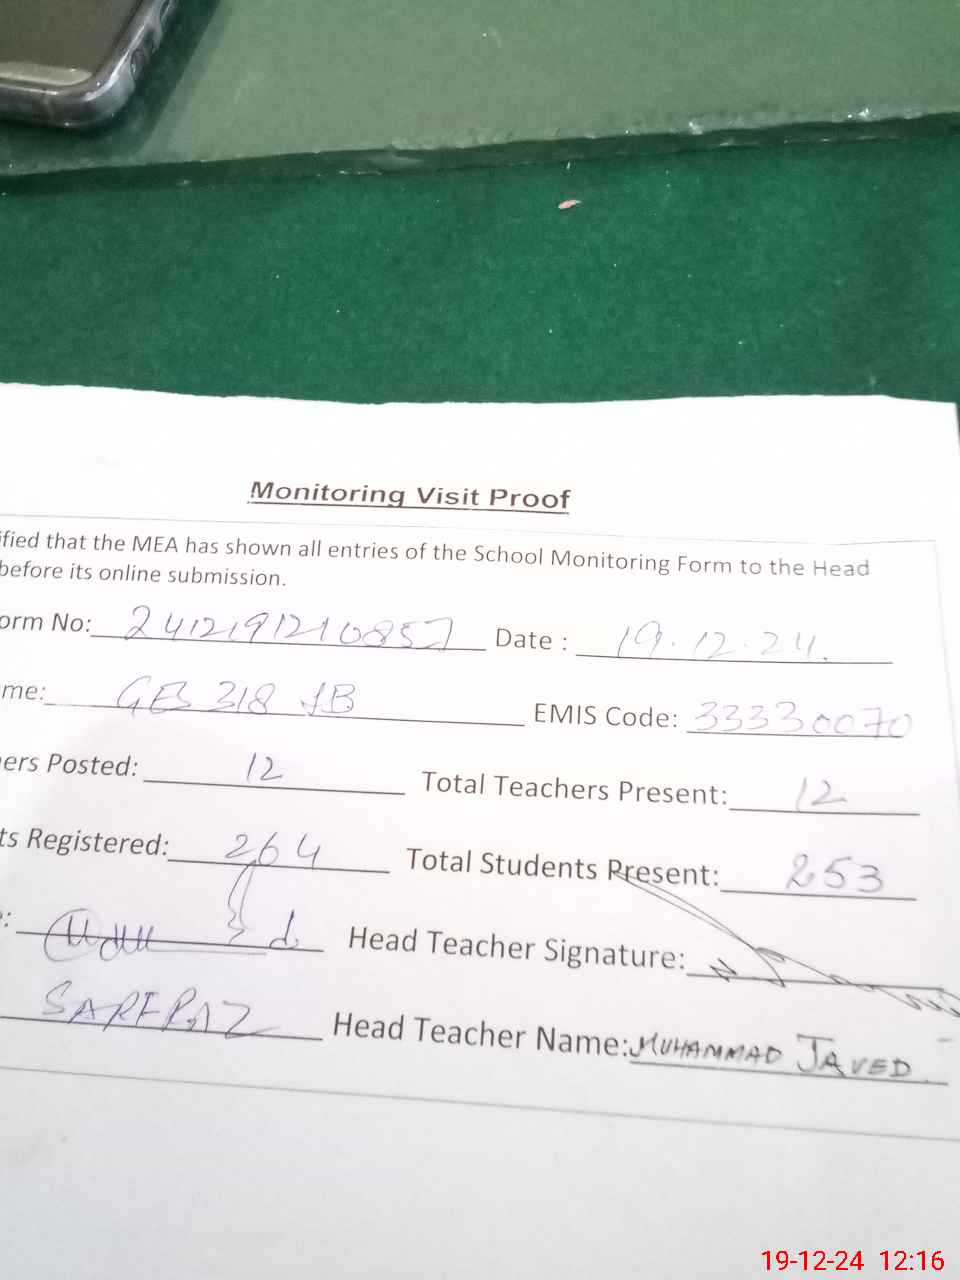 Monitoring Visit Proof
ified that the MEA has shown all entries of the School Monitoring Form to the Head
before its online submission.
orm No: 241219121085 Date : 19.12.24.
me: GES 318 JB EMIS Code: 33330070
ers Posted: 12 Total Teachers Present: 12
ts Registered: 264 Total Students Present: 253
: Head Teacher Signature:
SARFRAZ Head Teacher Name: MUHAMMAD JAVED
19-12-24 12:16